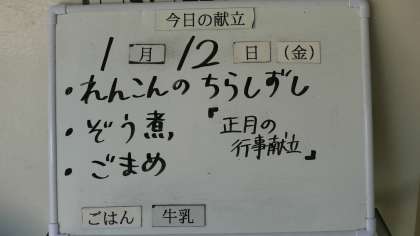 今日の献立
1月12日(金)
・れんこんのちらしずし
・ぞう煮,
『正月の
行事献立』
・ごまめ
ごはん 牛乳